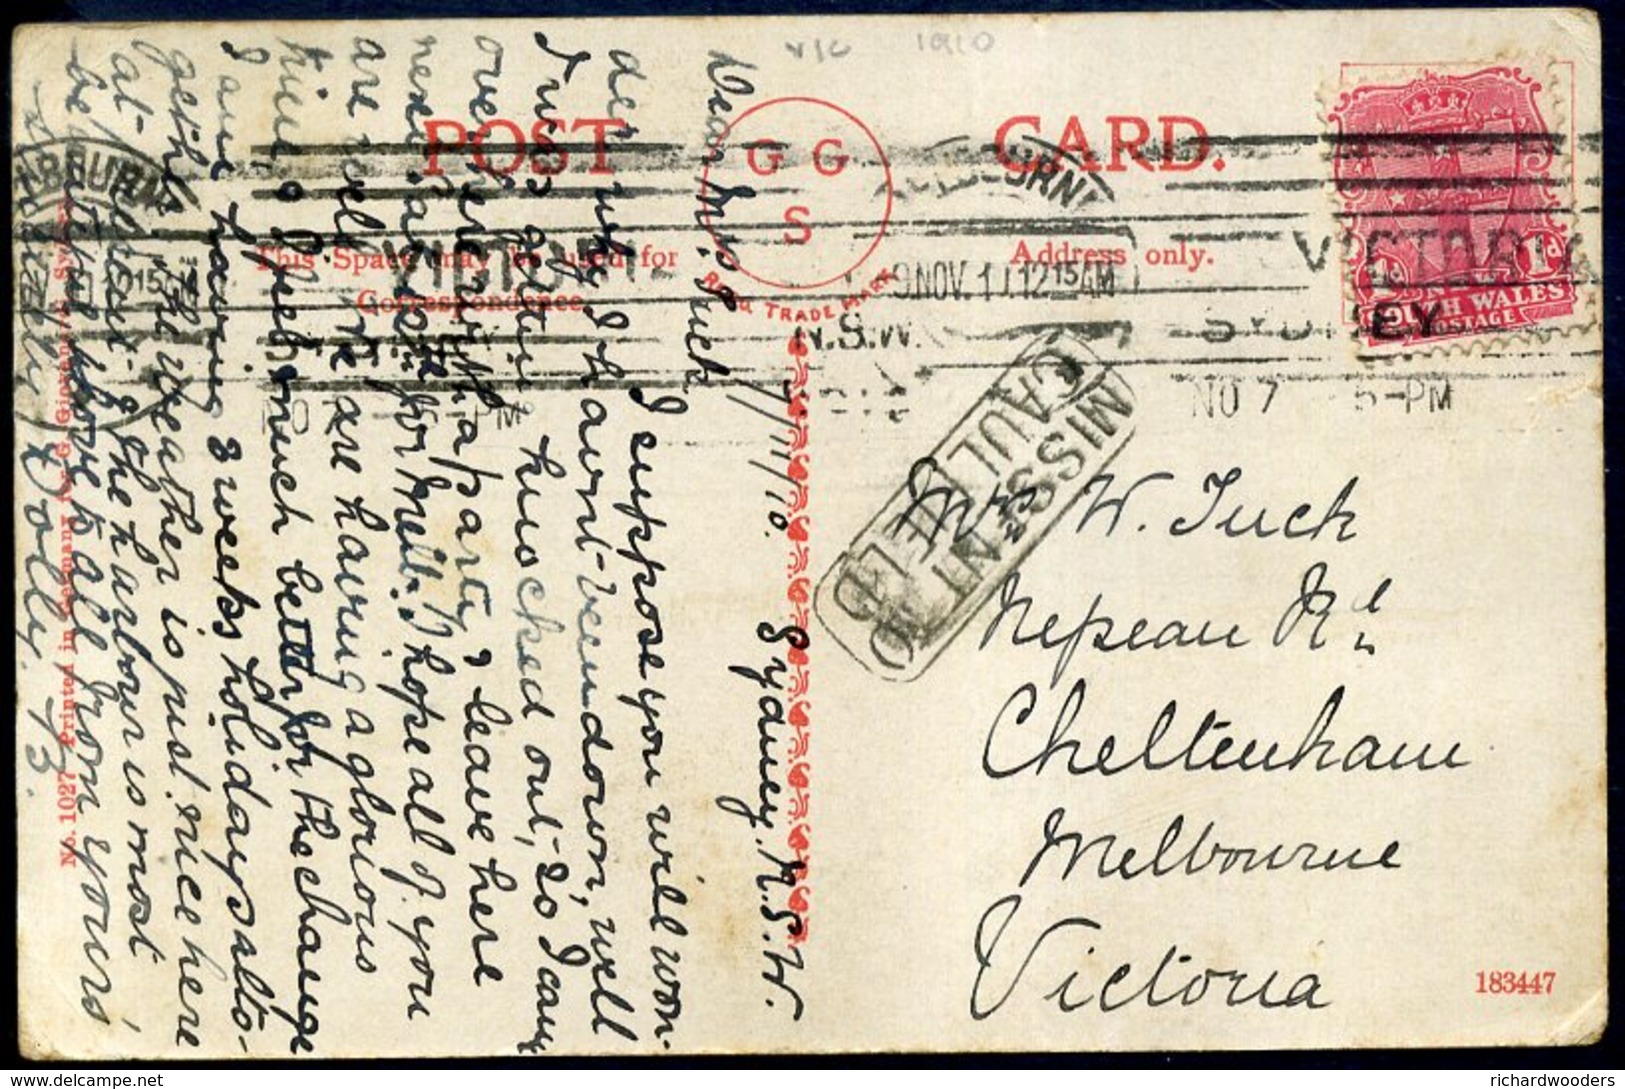 VIC 1910
POST CARD.
G G
S
REGD TRADE MARK
This Space may be used for
Correspondence.
Address only.
MELBOURNE
9 NOV. 10 12 15 AM
VICTORIA
N.S.W.
SYDNEY
NO 7 5-PM
SOUTH WALES
POSTAGE
1d
MISSENT TO
CAULFIELD
7/11/10. Sydney. N.S.W.
Dear Mrs Tuck,
I suppose you will won-
der why I havn't been down, well
I was getting knocked out, so I came
over here with a party, & leave here
next Sat 26th for Melb. I hope all of you
are well. We are having a glorious
time, & I feel much better for the change
I am having 3 weeks holidays alto-
gether. The weather is just nice here
at present & the harbour is most
beautiful. Love to all from yours
Dolly. B.
Mrs W. Tuck
Nepean Rd
Cheltenham
Melbourne
Victoria
183447
No. 1027 Printed in Germany for G. Giovanardi, Sydney
richardwooders